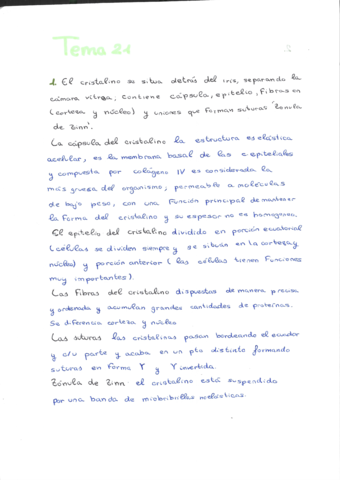 Tema 21
1. El cristalino se situa detrás del iris, separando la
cámara vítrea, contiene cápsula, epitelio, fibras en
(corteza y núcleo) y uniones que forman suturas 'Zonula
de Zinn'.
La cápsula del cristalino la estructura es elástica
acelular, es la membrana basal de las epiteliales
y compuesta por colágeno IV es considerada la
más gruesa del organismo, permeable a moléculas
de bajo peso, con una función principal de mantener
la forma del cristalino y su espesor no es homogeneo.
El epitelio del cristalino dividido en porción ecuatorial
(células se dividen siempre y se situan en la corteza y
núcleo) y porción anterior (las células tienen funciones
muy importantes).
Las fibras del cristalino dispuestas de manera precisa
y ordenada y acumulan grandes cantidades de proteínas.
Se diferencia corteza y núcleo
Las suturas las cristalinas pasan bordeando el ecuador
y c/u parte y acaba en un pto distinto formando
suturas en forma Y y Y invertida.
Zónula de Zinn el cristalino está suspendido
por una banda de